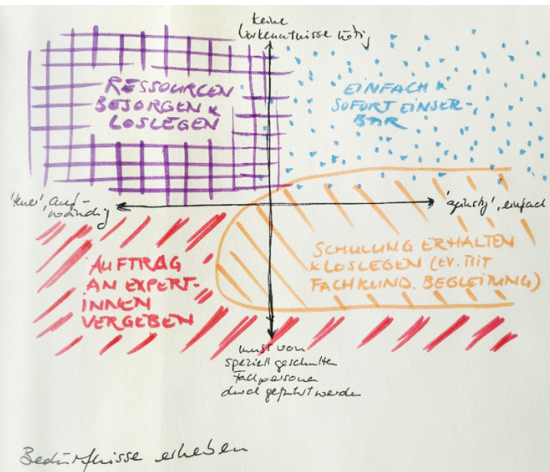 keine
Vorkenntnisse nötig
RESSOURCEN
BESORGEN &
LOSLEGEN
EINFACH &
SOFORT EINSER-
BAR
'teuer', auf-
wändig
'günstig', einfach
AUFTRAG
AN EXPERT-
INNEN
VERGEBEN
SCHULUNG ERHALTEN
& LOSLEGEN (EV. MIT
FACHKUND. BEGLEITUNG)
muss von
speziell geschulten
Fachpersonen
durchgeführt werden
Bedürfnisse erheben